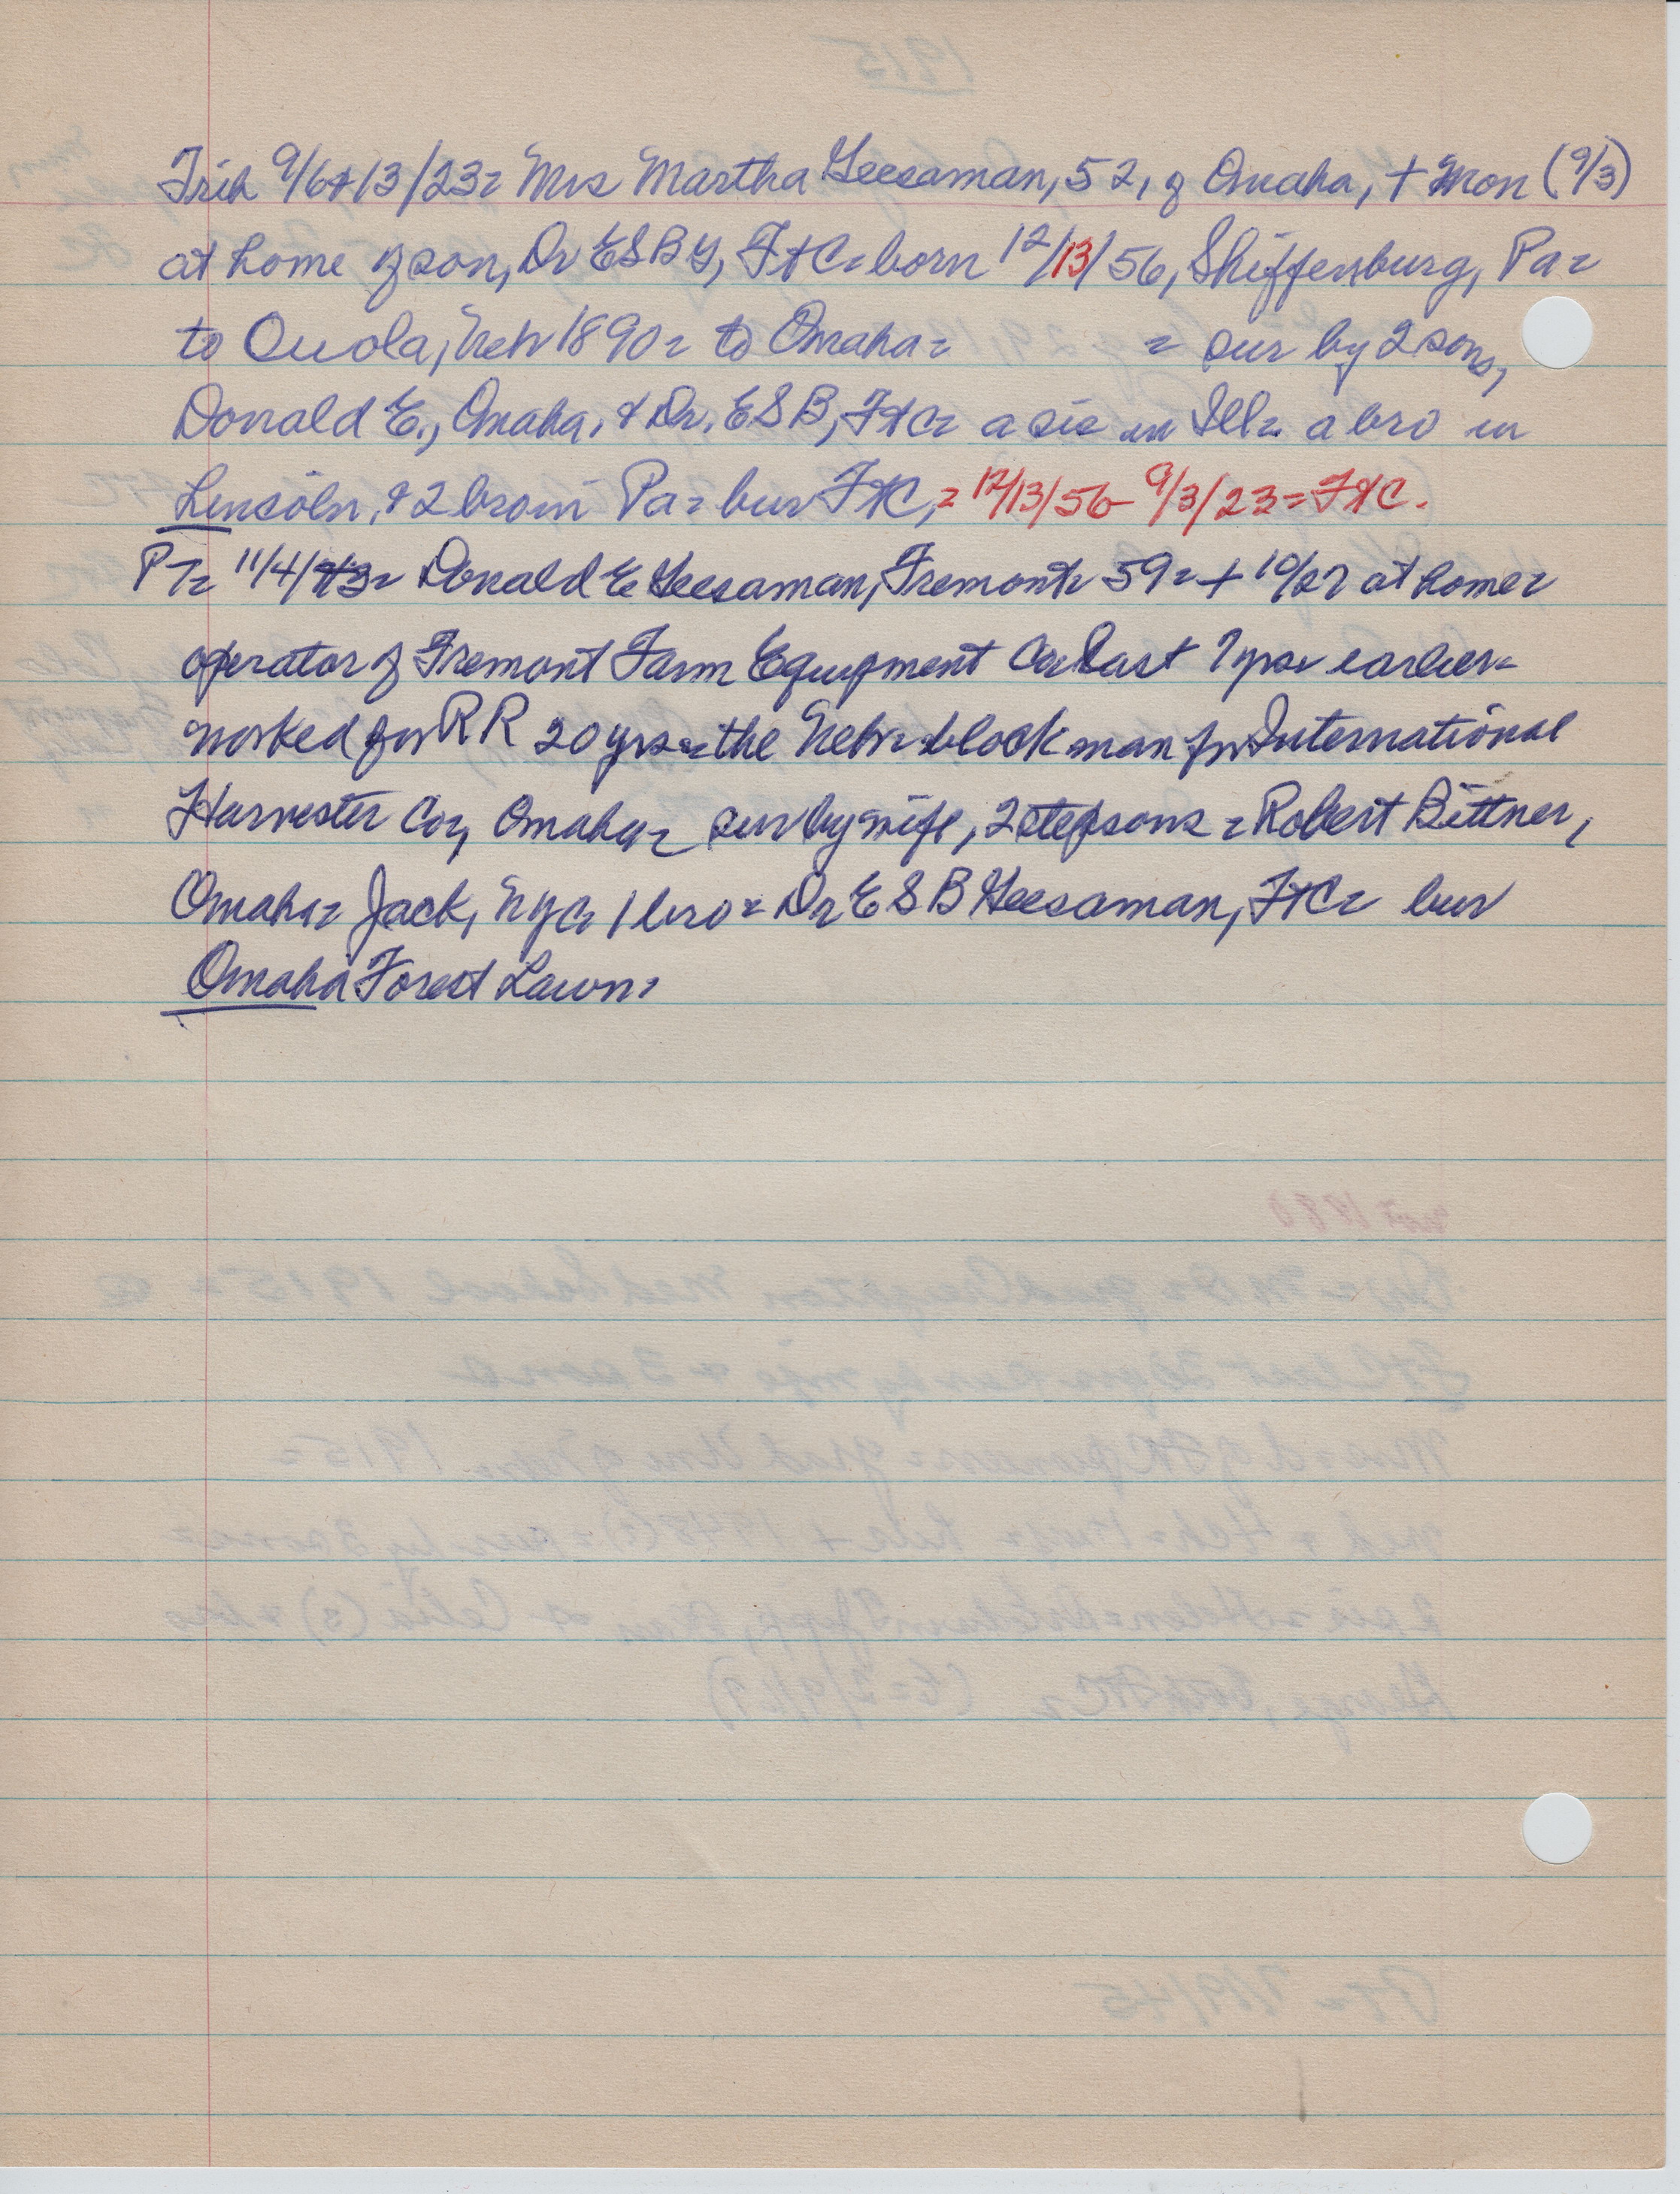 Trib 9/6+13/23= Mrs Martha Geesaman, 52, of Omaha, + Mon (9/3)
at home of son, Dr ESBG, FtC= born 12/13/56, Shiffenburg, Pa=
to Ouola, Neb 1890= to Omaha= = sur by 2 sons,
Donald E., Omaha, & Dr. ESB, FtC= a sis in Ill= a bro in
Lincoln, & 2 bro in Pa= bur FtC,= 12/13/56- 9/3/23= FtC.
PT= 11/4/43= Donald E Geesaman, Fremont= 59= + 10/27 at home=
operator of Fremont Farm Equipment Co last 7 yrs= earlier=
worked for RR 20 yrs= the Nebr= block man for International
Harvester Co, Omaha= sur by wife, 2 stepsons= Robert Bittner,
Omaha= Jack, NYC= 1 bro= Dr E S B Geesaman, FtC= bur
Omaha Forest Lawn=